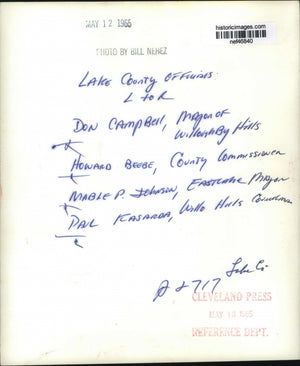 MAY 12 1965
historicimages.com
nef46840
PHOTO BY BILL NEHEZ
LAKE COUNTY OFFICIALS:
L to R
DON CAMPBELL, Mayor of
Willoughby Hills
HOWARD BEEBE, County Commissioner
MABLE P. JOHNSON, EASTLAKE Mayor
PAUL KASARDA, Willo Hills Councilman
Lake Co
CLEVELAND PRESS
MAY 13 1965
REFERENCE DEPT.